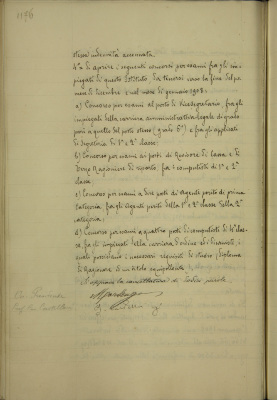 1196
stessa indennità accennata.
4° di aprire i seguenti concorsi per esami fra gli im-
piegati di questo Istituto, da tenersi verso la fine del pros-
mese di dicembre e nel mese di gennaio 1908:
a) Concorso per esami al posto di Vicesegretario, fra gli
impiegati della carriera amministrativa-legale di grado
pari a quello del posto stesso (grado 6°) e fra gli applicati
di segreteria di 1ª e 2ª classe;
b) Concorso per esami ai posti di Revisore di classe e di
Terzo Ragioniere di riparto, fra i computisti di 1ª e 2ª
classe;
c) Concorso per esami a due posti di Agenti periti di prima
categoria, fra gli Agenti periti della 1ª e 2ª classe della 2ª
categoria;
d) Concorso per esami a quattro posti di computisti di 4ª clas-
se, fra gli impiegati della carriera d'ordine ed i licenzisti, i
quali posseggano i necessari requisiti di studio (diploma
di Ragioniere o un titolo equipollente).
Si approva la cancellatura di